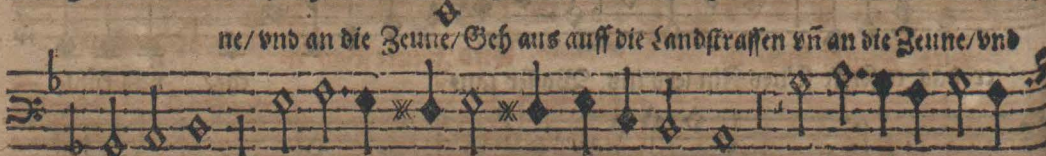 ne/ vnd an die Zeune/ Geh aus auff die Landstrassen vñ an die Zeune/ vnd